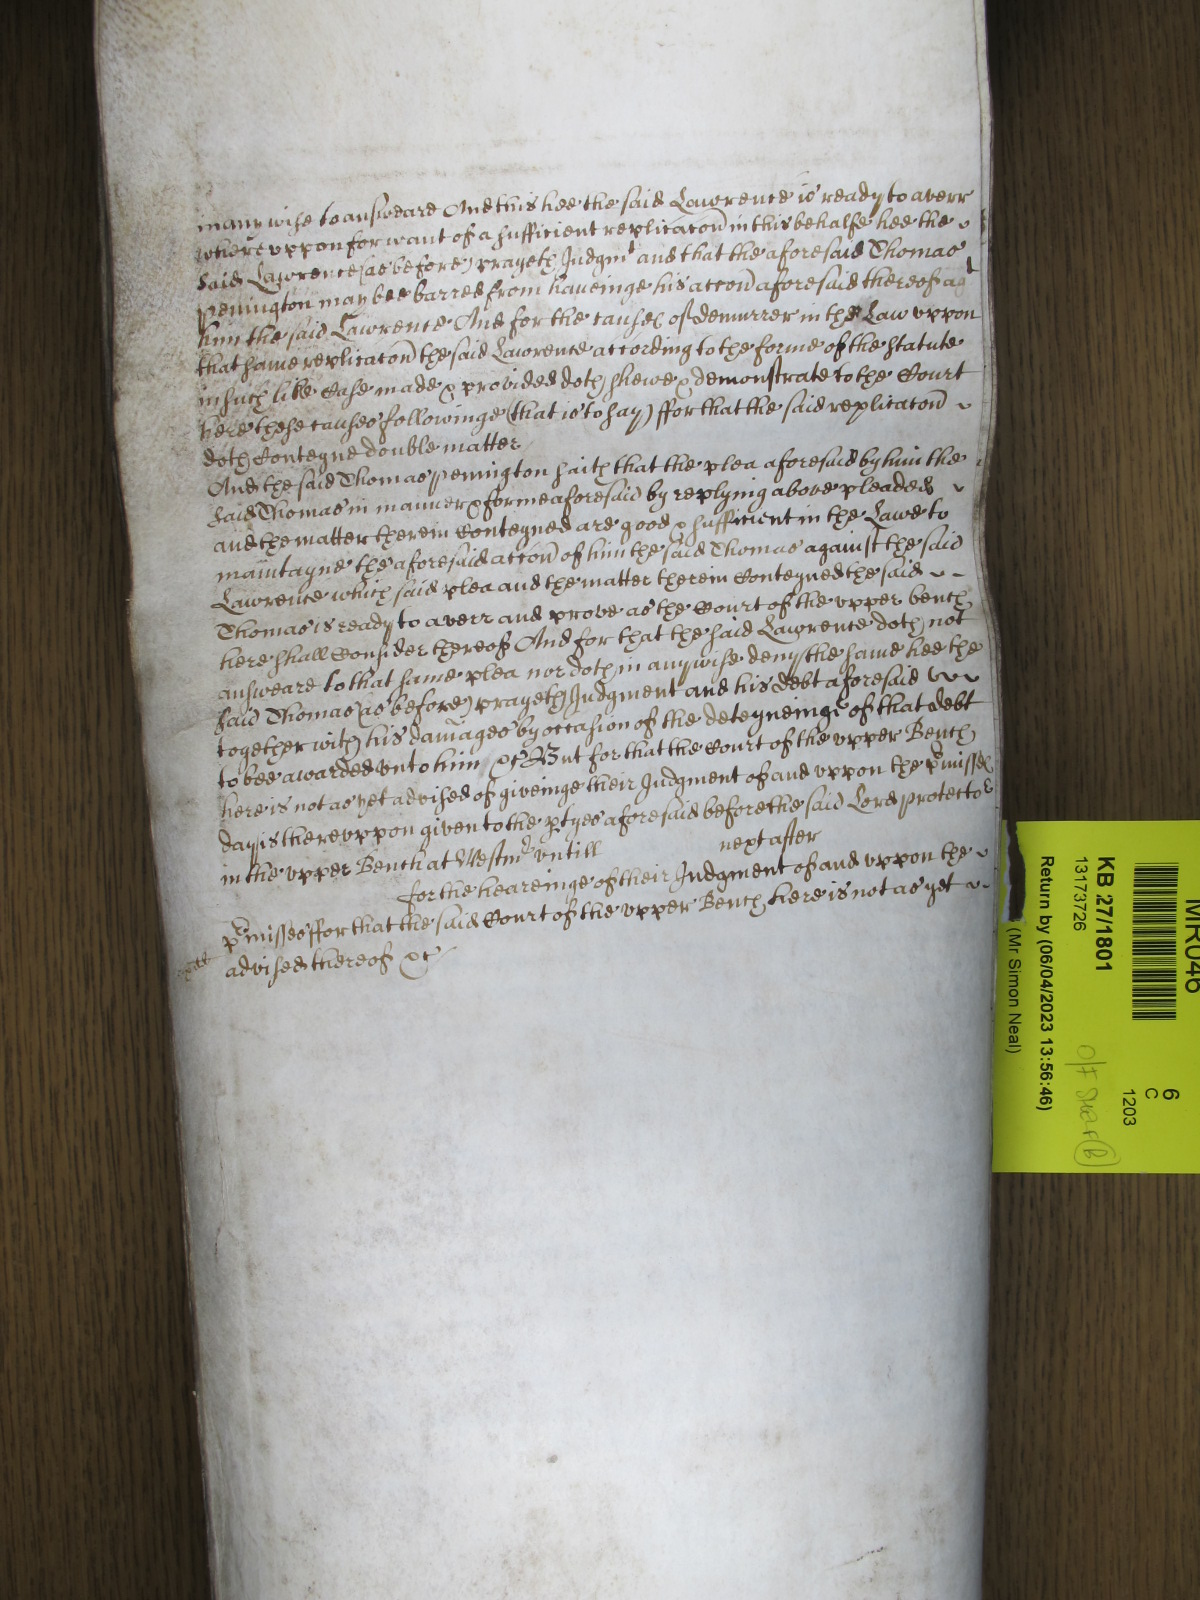 many wise to answeare And this hee the said Lawrence is ready to averr
whereuppon for want of a sufficient replicacon in this behalfe hee the
said Lawrence (as before) prayeth Judgmt and that the aforesaid Thomas
Penington may bee barred from haveinge his accon aforesaid thereof agt
him the said Lawrence And for the causes of demurrer in the Law uppon
that same replicacon the said Lawrence according to the forme of the statute
in such like Case made & provided doth shewe & demonstrate to the Court
here these causes followinge (that is to say) ffor that the said replicacon
doth Conteyne double matter
And the said Thomas Penington saith that the plea aforesaid by him the
said Thomas in manner & forme aforesaid by replying above pleaded
and the matter therein Conteyned are good & sufficient in the Lawe to
maintayne the aforesaid accon of him the said Thomas against the said
Lawrence which said plea and the matter therein Conteyned the said
Thomas is ready to averr and prove as the Court of the upper bench
here shall Consider thereof And for that the said Lawrence doth not
answeare to that same plea nor doth in any wise deny the same hee the
said Thomas (as before) prayeth Judgment and his debt aforesaid
together with his damages by occasion of the deteyneinge of that debt
to bee awarded unto him &c But for that the Court of the upper Bench
here is not as yet advised of giveinge their Judgment of and uppon the pmisses
day is thereuppon given to the ptyes aforesaid before the said Lord protector
in the upper Bench at Westmr untill next after
for the heareinge of their Judgment of and uppon the
pmisses ffor that the said Court of the upper Bench here is not as yet
advised thereof &c
MR046
6
C
1203
KB 27/1801
13173726
Return by (06/04/2023 13:56:46)
(Mr Simon Neal)
O/F